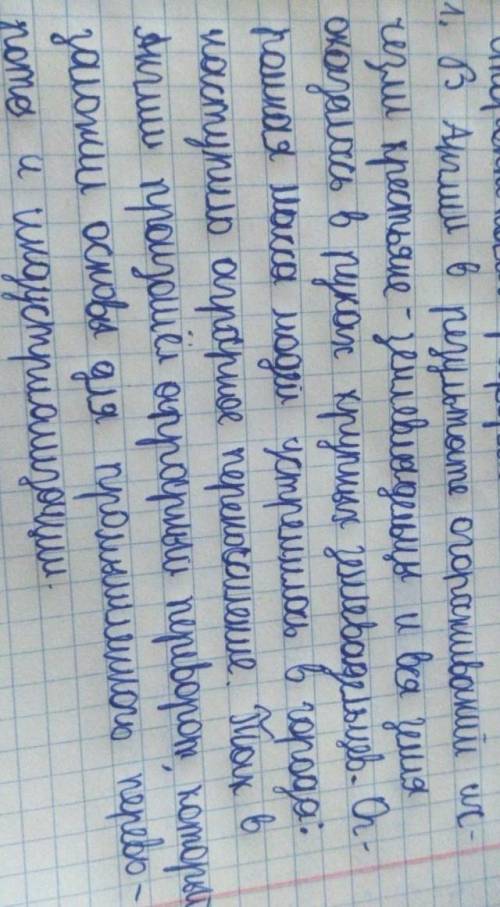 1. В Англии в результате огораживаний ис-
чезли крестьяне-землевладельцы и вся земля
оказалась в руках крупных землевладельцев. Ог-
ромная масса людей устремилась в города:
наступило аграрное перенаселение. Так в
Англии произошёл аграрный переворот, который
заложил основы для промышленного перево-
рота и индустриализации.